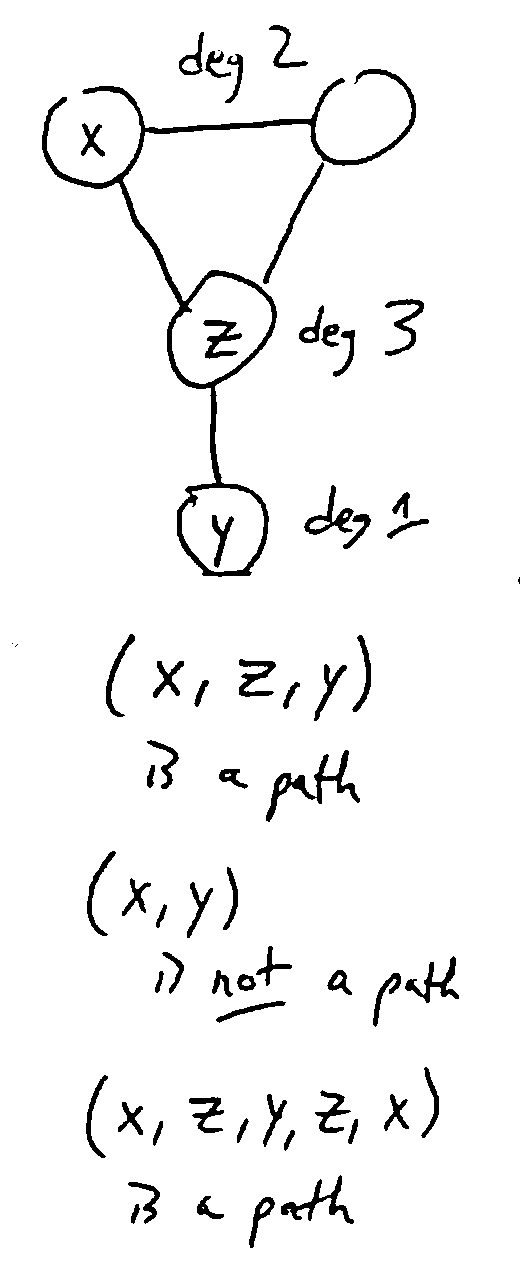 deg 2
x
z deg 3
y deg 1
(x, z, y)
is a path
(x, y)
is not a path
(x, z, y, z, x)
is a path